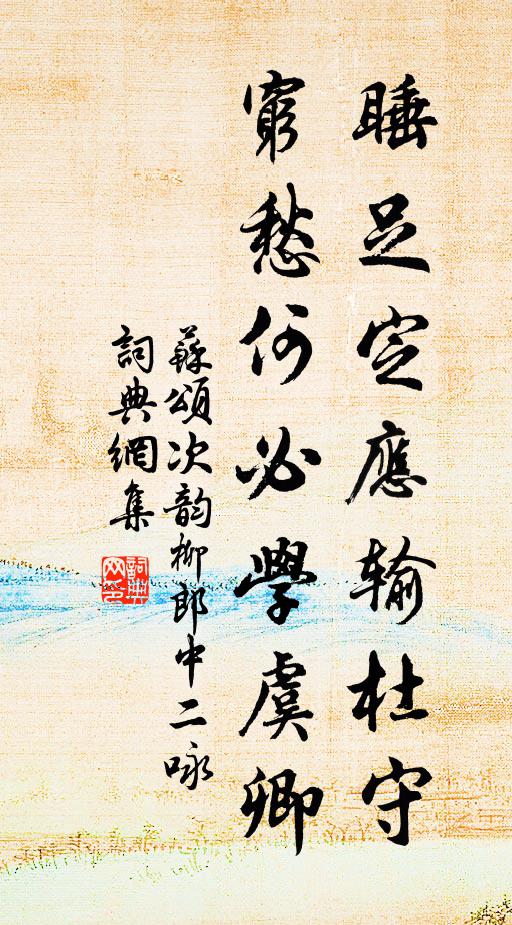 睡足定應输杜守
窮愁何必學虞卿
蘇頌次韵柳郎中二咏
詞典網集
詞典
网